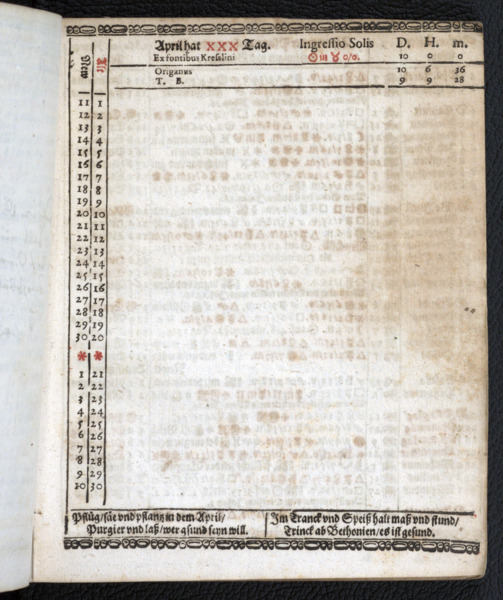 April hat XXX Tag. Ingressio Solis D. H. m.
Ex fontibus Kreslini ☉ in ♉ 0/0. 10 0 0
Origanus 10 6 36
T. B. 9 9 28
New Alt
11 1
12 2
13 3
14 4
15 5
16 6
17 7
18 8
19 9
20 10
21 11
22 12
23 13
24 14
25 15
26 16
27 17
28 18
29 19
30 20
* *
1 21
2 22
3 23
4 24
5 25
6 26
7 27
8 28
9 29
10 30
Pflüg/säe vnd pflantz in dem April/
Purgier vnd laß/wer gsund seyn will.
Im Tranck vnd Speiß halt maß vnd stund/
Trinck ab Bethonien/es ist gesund.